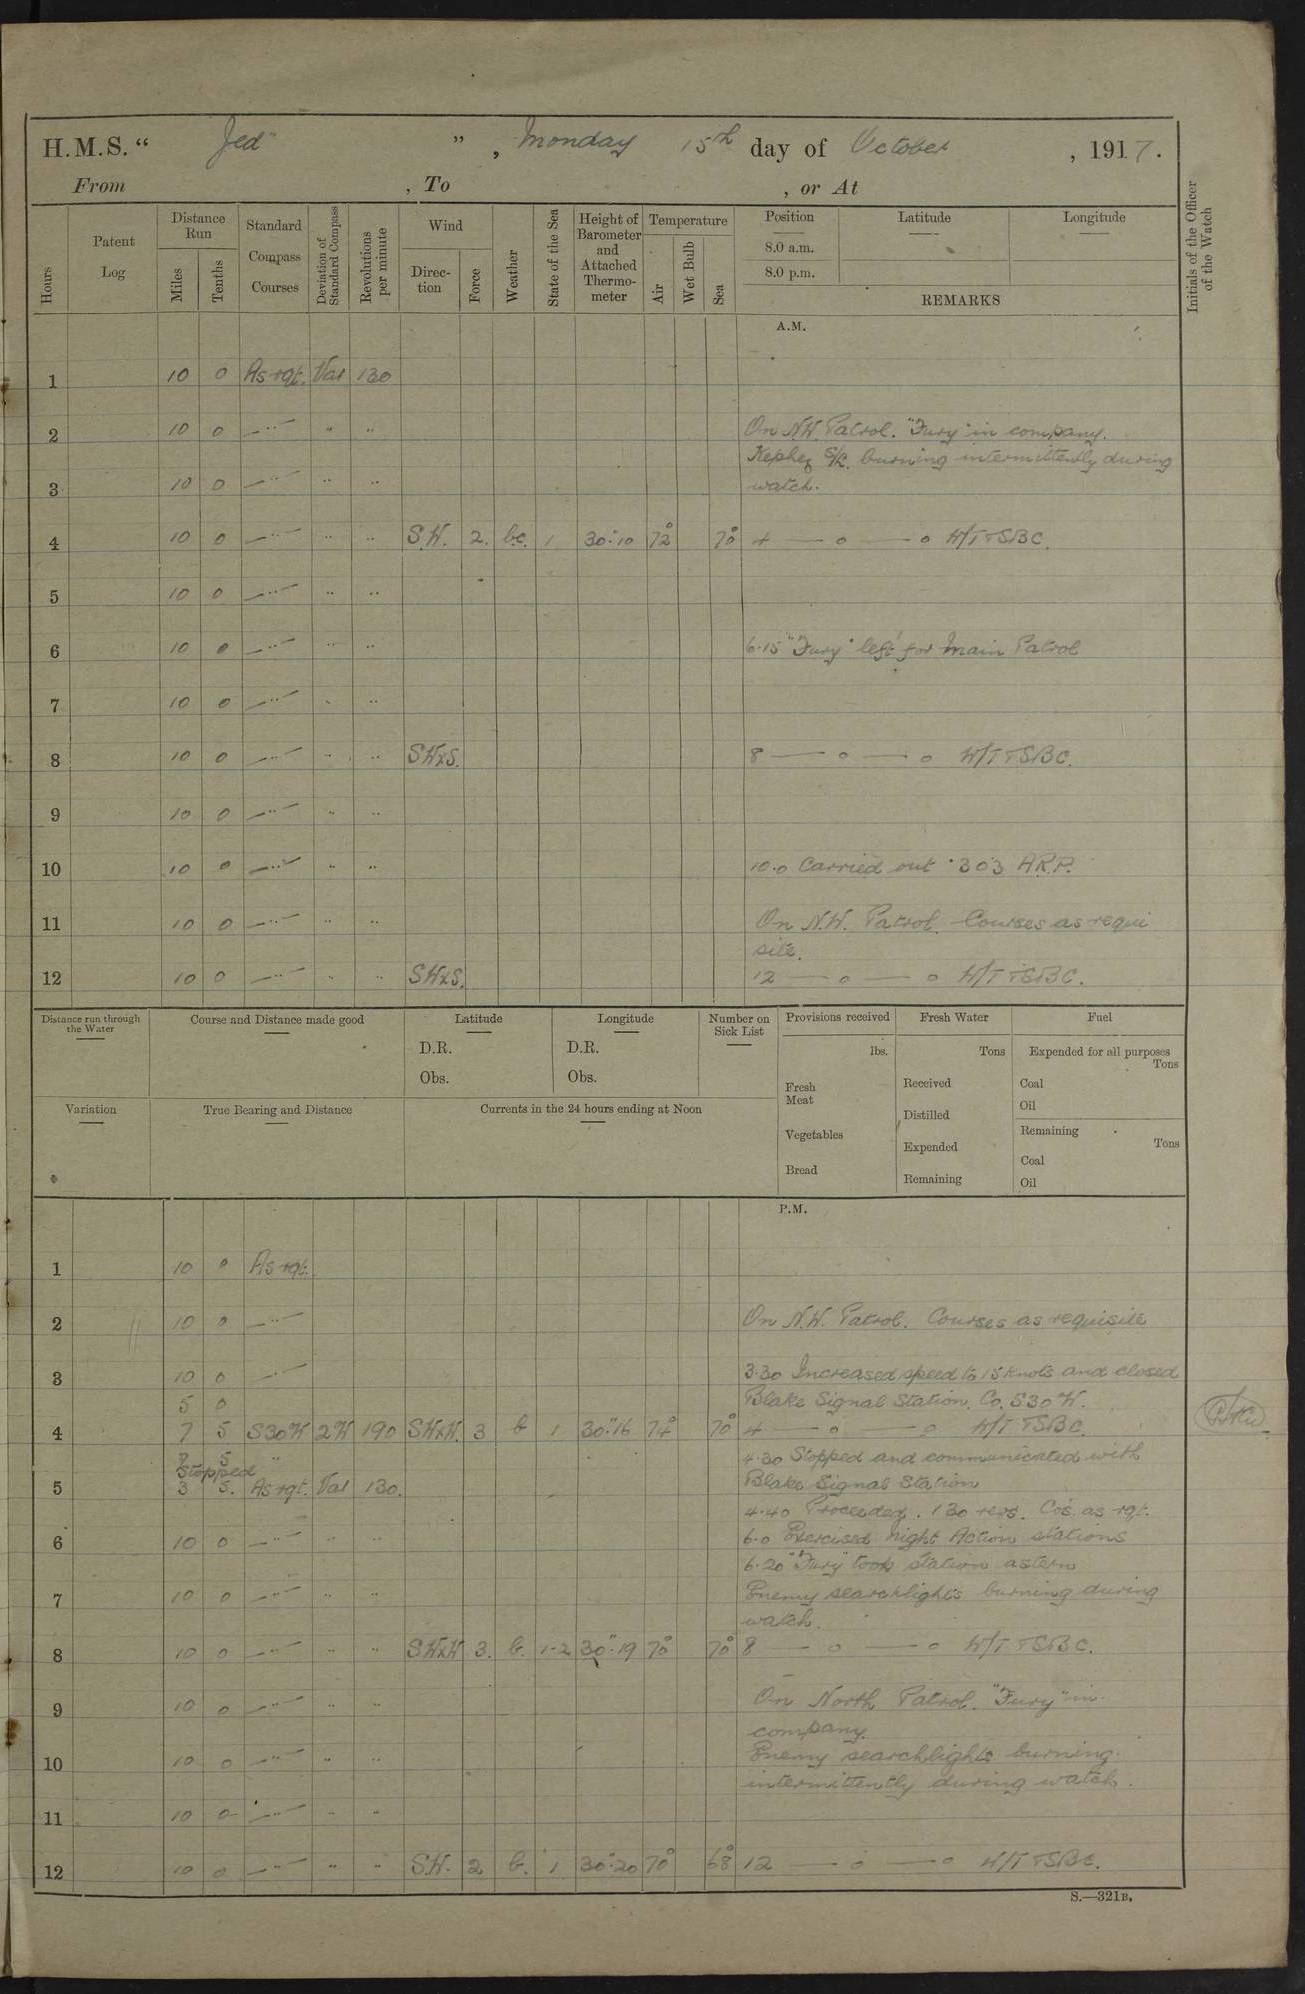 H.M.S. " Jed " , Monday 15th day of October , 1917.
From , To , or At
Hours Patent Log Distance Run Miles Tenths Standard Compass Courses Deviation of Standard Compass Revolutions per minute Wind Direc-tion Force Weather State of the Sea Height of Barometer and Attached Thermo-meter Temperature Air Wet Bulb Sea Position Latitude Longitude
8.0 a.m.
8.0 p.m.
REMARKS
Initials of the Officer of the Watch
A.M.
1 10 0 As rqt. Var 130
2 10 0 —"— " " On N.W. Patrol. "Fury" in company.
Kephez S/L. burning intermittently during
3 10 0 —"— " " watch.
4 10 0 —"— " " S.W. 2. bc. 1 30".10 72° 70° 4 — o — o W/T TSBC.
5 10 0 —"— " "
6 10 0 —"— " " 6.15 "Fury" left for Main Patrol
7 10 0 —"— " "
8 10 0 —"— " " SWxS. 8 — o — o W/T TSBC.
9 10 0 —"— " "
10 10 0 —"— " " 10.0 Carried out .303 A.R.P.
11 10 0 —"— " " On N.W. Patrol. Courses as requi
site.
12 10 0 —"— " " SWxS. 12 — o — o W/T TSBC.
Distance run through the Water Course and Distance made good Latitude Longitude Number on Sick List Provisions received Fresh Water Fuel
D.R. D.R. lbs. Tons Expended for all purposes Tons
Obs. Obs. Fresh Meat Received Coal
Variation True Bearing and Distance Currents in the 24 hours ending at Noon Distilled Oil
Vegetables Expended Remaining Tons
Coal
Bread Remaining Oil
P.M.
1 10 0 As rqt.
2 10 0 —"— On N.W. Patrol. Courses as requisite
3 10 0 —"— 3.30 Increased speed to 15 knots and closed
5 0 Blake Signal Station. Co. S30°W.
4 7 5 S30W 2W 190 SWxW. 3 b 1 30".16 74° 70° 4 — o — o W/T TSBC.
7 5 " 4.30 Stopped and communicated with
Stopped
5 3 5. As rqt. Var 130. Blake Signal Station
4.40 Proceeded. 130 revs. Co's. as rqt.
6 10 0 —"— " " 6.0 Exercised night Action stations
6.20 "Fury" took station astern
7 10 0 —"— " " Enemy searchlights burning during
watch.
8 10 0 —"— " " SWxW 3. b. 1-2 30".19 70° 70° 8 — o — o W/T TSBC.
9 10 0 —"— " " On North Patrol. "Fury" in
company.
10 10 0 —"— " " Enemy searchlights burning
intermittently during watch.
11 10 0 —"— " "
12 10 0 —"— " " S.W. 2 b. 1 30".20 70° 68° 12 — o — o W/T TSBC.
S.—321B.